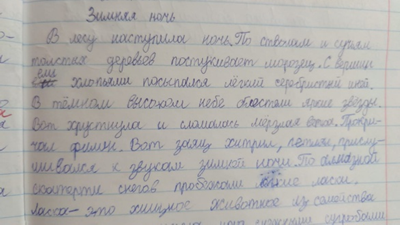 Зимняя ночь
В лесу наступила ночь. По стволам и сучьям
толстых деревьев постукивает морозец. С вершин
ели хлопьями посыпался лёгкий серебристый иней.
В тёмном высоком небе блестят яркие звёзды.
Вот хрустнула и сломалась мёрзлая ветка. Прокри-
чал филин. Вот заяц хитрил, петлял, прислу-
шивался к звукам зимней ночи. По алмазной
скатерти снегов пробежали ласки.
Ласка - это хищное животное из семейства